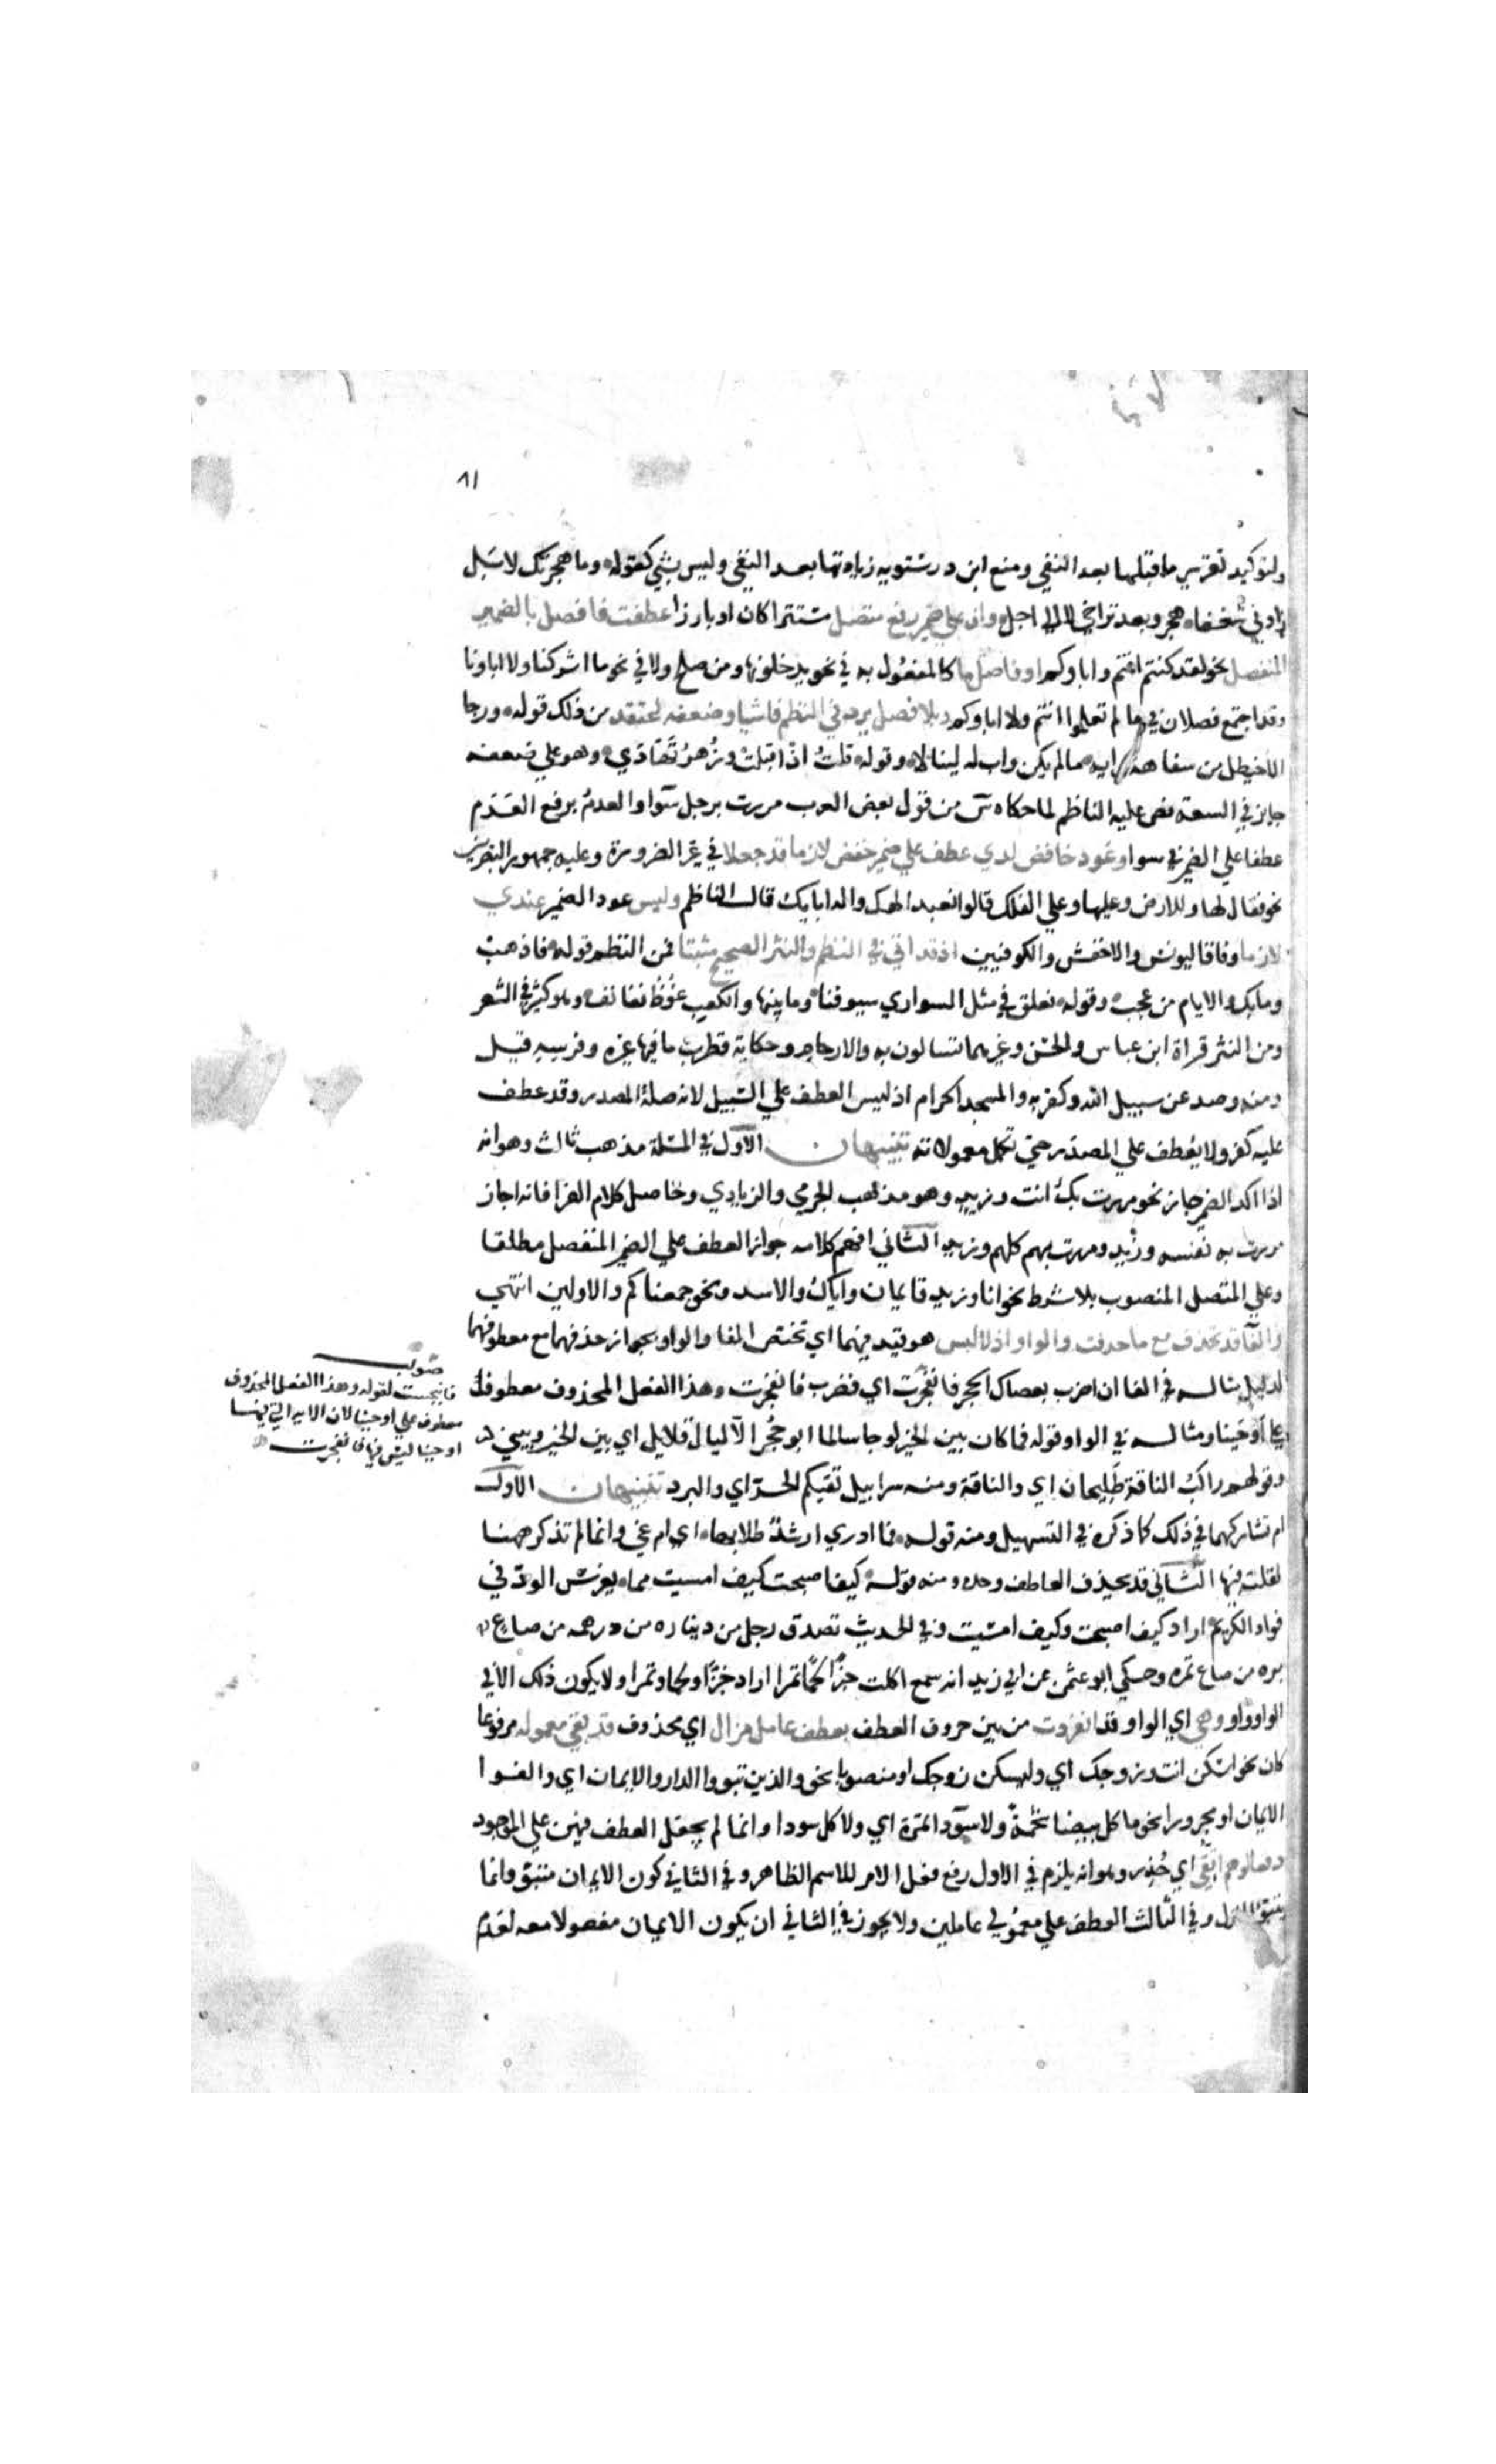 ٨١
ولتوكيد تقرير ما قبلها بعد النفي ومنع ابن درستويه زيادتها بعد النفي وليس بشي كقوله وما هجرتك لا بل
زادني شغفا هجر وبعد تراخي لا الي اجل وان علي ضمير رفع متصل مستترا كان او بارزا عطفت فافصل بالضمير
المنفصل نحو لقد كنتم انتم واباوكم او فاصل ما كالمفعول به في نحو يدخلونها ومن صلح ولا في نحو ما اشركنا ولا اباونا
وقد اجتمع فصلان في ما لم تعلموا انتم ولا اباوكم وبلا فصل يرد في النظم فاشيا وضعفه اعتقد من ذلك قوله ورجا
الاخيطل من سفاهة رايه ما لم يكن واب له لينالا وقوله قلت اذ اقبلت وزهر تهادي وهو علي ضعفه
جايز في السعة نص عليه الناظم لما حكاه س من قول بعض العرب مررت برجل سوا والعدم برفع العدم
عطفا علي الضمير في سوا وعود خافض لدي عطف علي ضمير خفض لازما قد جعلا في غير الضرورة وعليه جمهور البصريين
نحو فقال لها وللارض وعليها وعلي الفلك قالوا نعبد الهك واله ابايك قال الناظم وليس عود الضمير عندي
لازما وفاقا ليونس والاخفش والكوفيين اذ قد اتي في النظم والنثر الصحيح مثبتا فمن النظم قوله فاذهب
وما بك والايام من عجب وقوله نعلق في مثل السواري سيوفنا وما بينها والكعب غوط نفانف وهو كثير في الشعر
ومن النثر قراة ابن عباس والحسن وغيرهما تسالون به والارحام وحكاية قطرب ما فيها غيره وفرسه قيل
ومنه وصد عن سبيل الله وكفر به والمسجد الحرام اذ ليس العطف علي السبيل لانه صلة المصدر وقد عطف
عليه كفر ولا يعطف علي المصدر حتي تكمل معمولاته تنبيهان الاول في المسئلة مذهب ثالث وهو انه
اذا اكد الضمير جاز نحو مررت بك انت وزيد وهو مذهب الجرمي والزيادي وحاصل كلام الفرا فانه اجاز
مررت به نفسه وزيد ومررت بهم كلهم وزيد الثاني افهم كلامه جواز العطف علي الضمير المنفصل مطلقا
وعلي المتصل المنصوب بلا شرط نحو انا وزيد قايمان واياك والاسد ونحو جمعناكم والاولين انتهي
والفا قد تحذف مع ما عطفت والواو اذ لا لبس هو قيد فيهما اي تختص الفا والواو بجواز حذفهما مع معطوفهما
لدليل مثاله في الفا ان اضرب بعصاك الحجر فانفجرت اي فضرب فانفجرت وهذا الفعل المحذوف معطوف
علي اوحينا ومثاله في الواو قوله فما كان بين الخير لو جا سالما ابو حجر الا ليال قلايل اي بين الخير وبيني
وقولهم راكب الناقة طليحان اي والناقة ومنه سرابيل تقيكم الحر اي والبرد تنبيهان الاول
ام تشاركهما في ذلك كما ذكره في التسهيل ومنه قوله فما ادري ارشد طلابها اي ام غي وانما لم تذكر ههنا
لقلته فيها الثاني قد يحذف العاطف وحده ومنه قوله كيف اصبحت كيف امسيت مما يغرس الود في
فواد الكريم اراد كيف اصبحت وكيف امسيت وفي الحديث تصدق رجل من ديناره من درهمه من صاع
بره من صاع تمره وحكي ابو عثمن عن ابي زيد انه سمع اكلت خبزا لحما تمرا اراد خبزا ولحما وتمرا ولا يكون ذلك الا في
الواو واو وهي اي الواو قد انفردت من بين حروف العطف بعطف عامل مزال اي محذوف قد بقي معموله مرفوعا
كان نحو اسكن انت وزوجك اي وليسكن زوجك او منصوبا نحو والذين تبووا الدار والايمان اي والفوا
الايمان او مجرورا نحو ما كل بيضا شحمة ولا سودا تمرة اي ولا كل سودا وانما لم يجعل العطف فيهن علي الموجود
دفعا لوهم اتقي اي حذر وهو انه يلزم في الاول رفع فعل الامر للاسم الظاهر وفي الثاني كون الايمان متبوا وانما
يتبوا المنزل وفي الثالث العطف علي معمولي عاملين ولا يجوز في الثاني ان يكون الايمان مفعولا معه لعدم
صوابه
فانبجست لقوله وهذا الفعل المحذوف
معطوف علي اوحينا لان الايه التي فيها
اوحينا ليس فيها فانفجرت